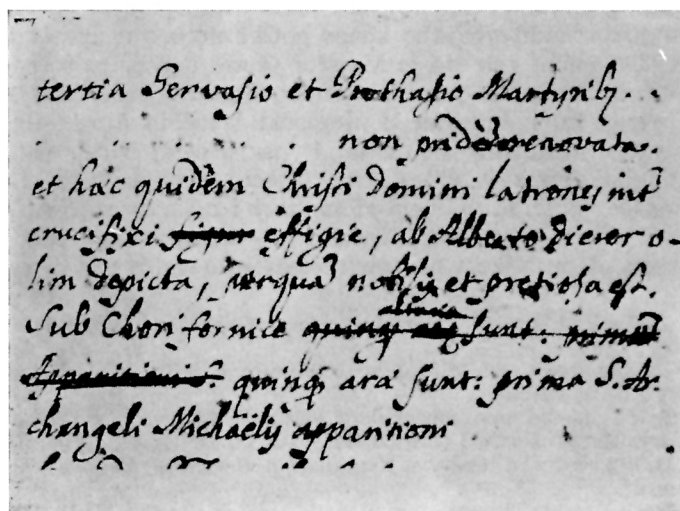 tertia Gervasio et Prothasio Martyrib9.
non pridē renovata.
et hac quidem Christi Domini latrones int
crucifixi figur effigie, ab Alberto Dierer o-
lim depicta, nobilis et pretiosa est.
altaria
Sub Chori fornice quinq sunt: prima
Apparitioni S. quinq arae sunt: prima S. Ar
changeli Michaëlis apparitioni